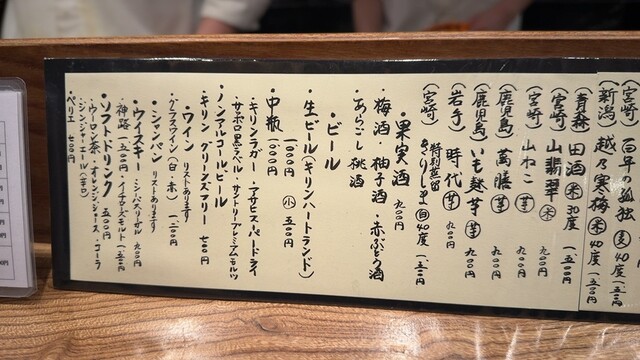 (宮崎) 百年の孤独 (麦) 40度 一、五〇〇円
(新潟) 越乃寒梅 (米) 40度 一、五〇〇円
青森 田酒 (米) 30度 一、五〇〇円
(宮崎) 山翡翠 (米) 九〇〇円
(宮崎) 山ねこ (芋) 九〇〇円
(鹿児島) 萬膳 (芋) 九〇〇円
(鹿児島) いも麹芋 (芋) 九〇〇円
(岩手) 時代 (芋) 九〇〇円
(宮崎) 特別蒸留きりしま 40度 一、五〇〇円
・果実酒 九〇〇円
・梅酒・柚子酒・赤ぶどう酒
・あらごし桃酒
・ビール
・生ビール(キリンハートランド)
一〇〇〇円 (小) 五〇〇円
・中瓶 一〇〇〇円
・キリンラガー・アサヒスーパードライ
・サッポロ黒ラベル・サントリープレミアムモルツ
・ノンアルコールビール
・キリン グリーンズフリー 七〇〇円
・ワイン リストあります
・グラスワイン(白・赤) 一、二〇〇円
・シャンパン リストあります
・ウイスキー ・シーバスリーガル 九〇〇円
・神路 一、五〇〇円 ・イチローズモルト 一、五〇〇円
・ソフトドリンク 五〇〇円
・ウーロン茶・オレンジジュース・コーラ
・ジンジャーエール(辛口)
・ペリエ 七〇〇円